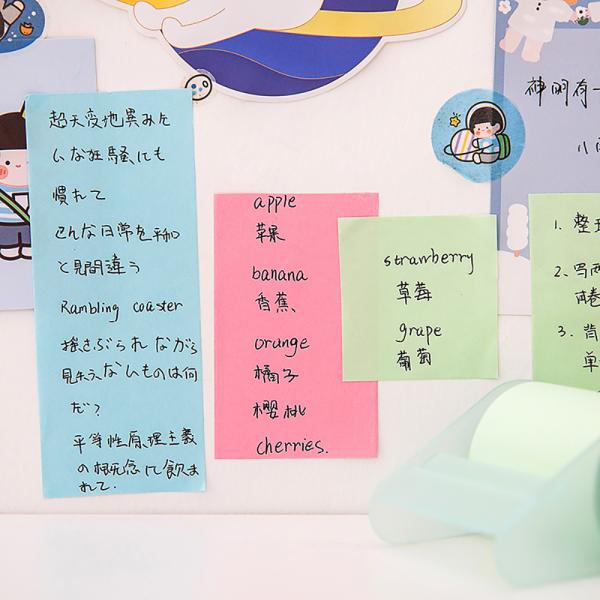 超天変地異みた
いな狂騒にも
慣れて
こんな日常を平和
と見間違う
Rambling coaster
揺さぶられながら
見失えないものは何
だ？
平等性原理主義
の概念に飲ま
れて.
apple
苹果
banana
香蕉、
orange
橘子
樱桃
cherries.
strawberry
草莓
grape
葡萄
神明有一
小
1. 整
2. 写两
卷
3. 背
单